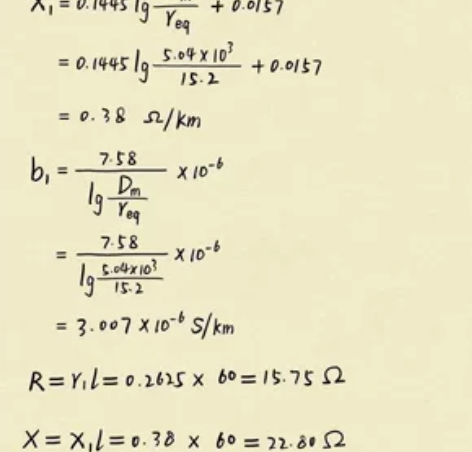 x₁ = 0.1445 lg —/r_eq + 0.0157
= 0.1445 lg 5.04×10³/15.2 + 0.0157
= 0.38 Ω/km
b₁ = 7.58/(lg D_m/r_eq) ×10⁻⁶
= 7.58/(lg 5.04×10³/15.2) ×10⁻⁶
= 3.007 ×10⁻⁶ S/km
R = r₁l = 0.2625 × 60 = 15.75 Ω
X = x₁l = 0.38 × 60 = 22.80 Ω